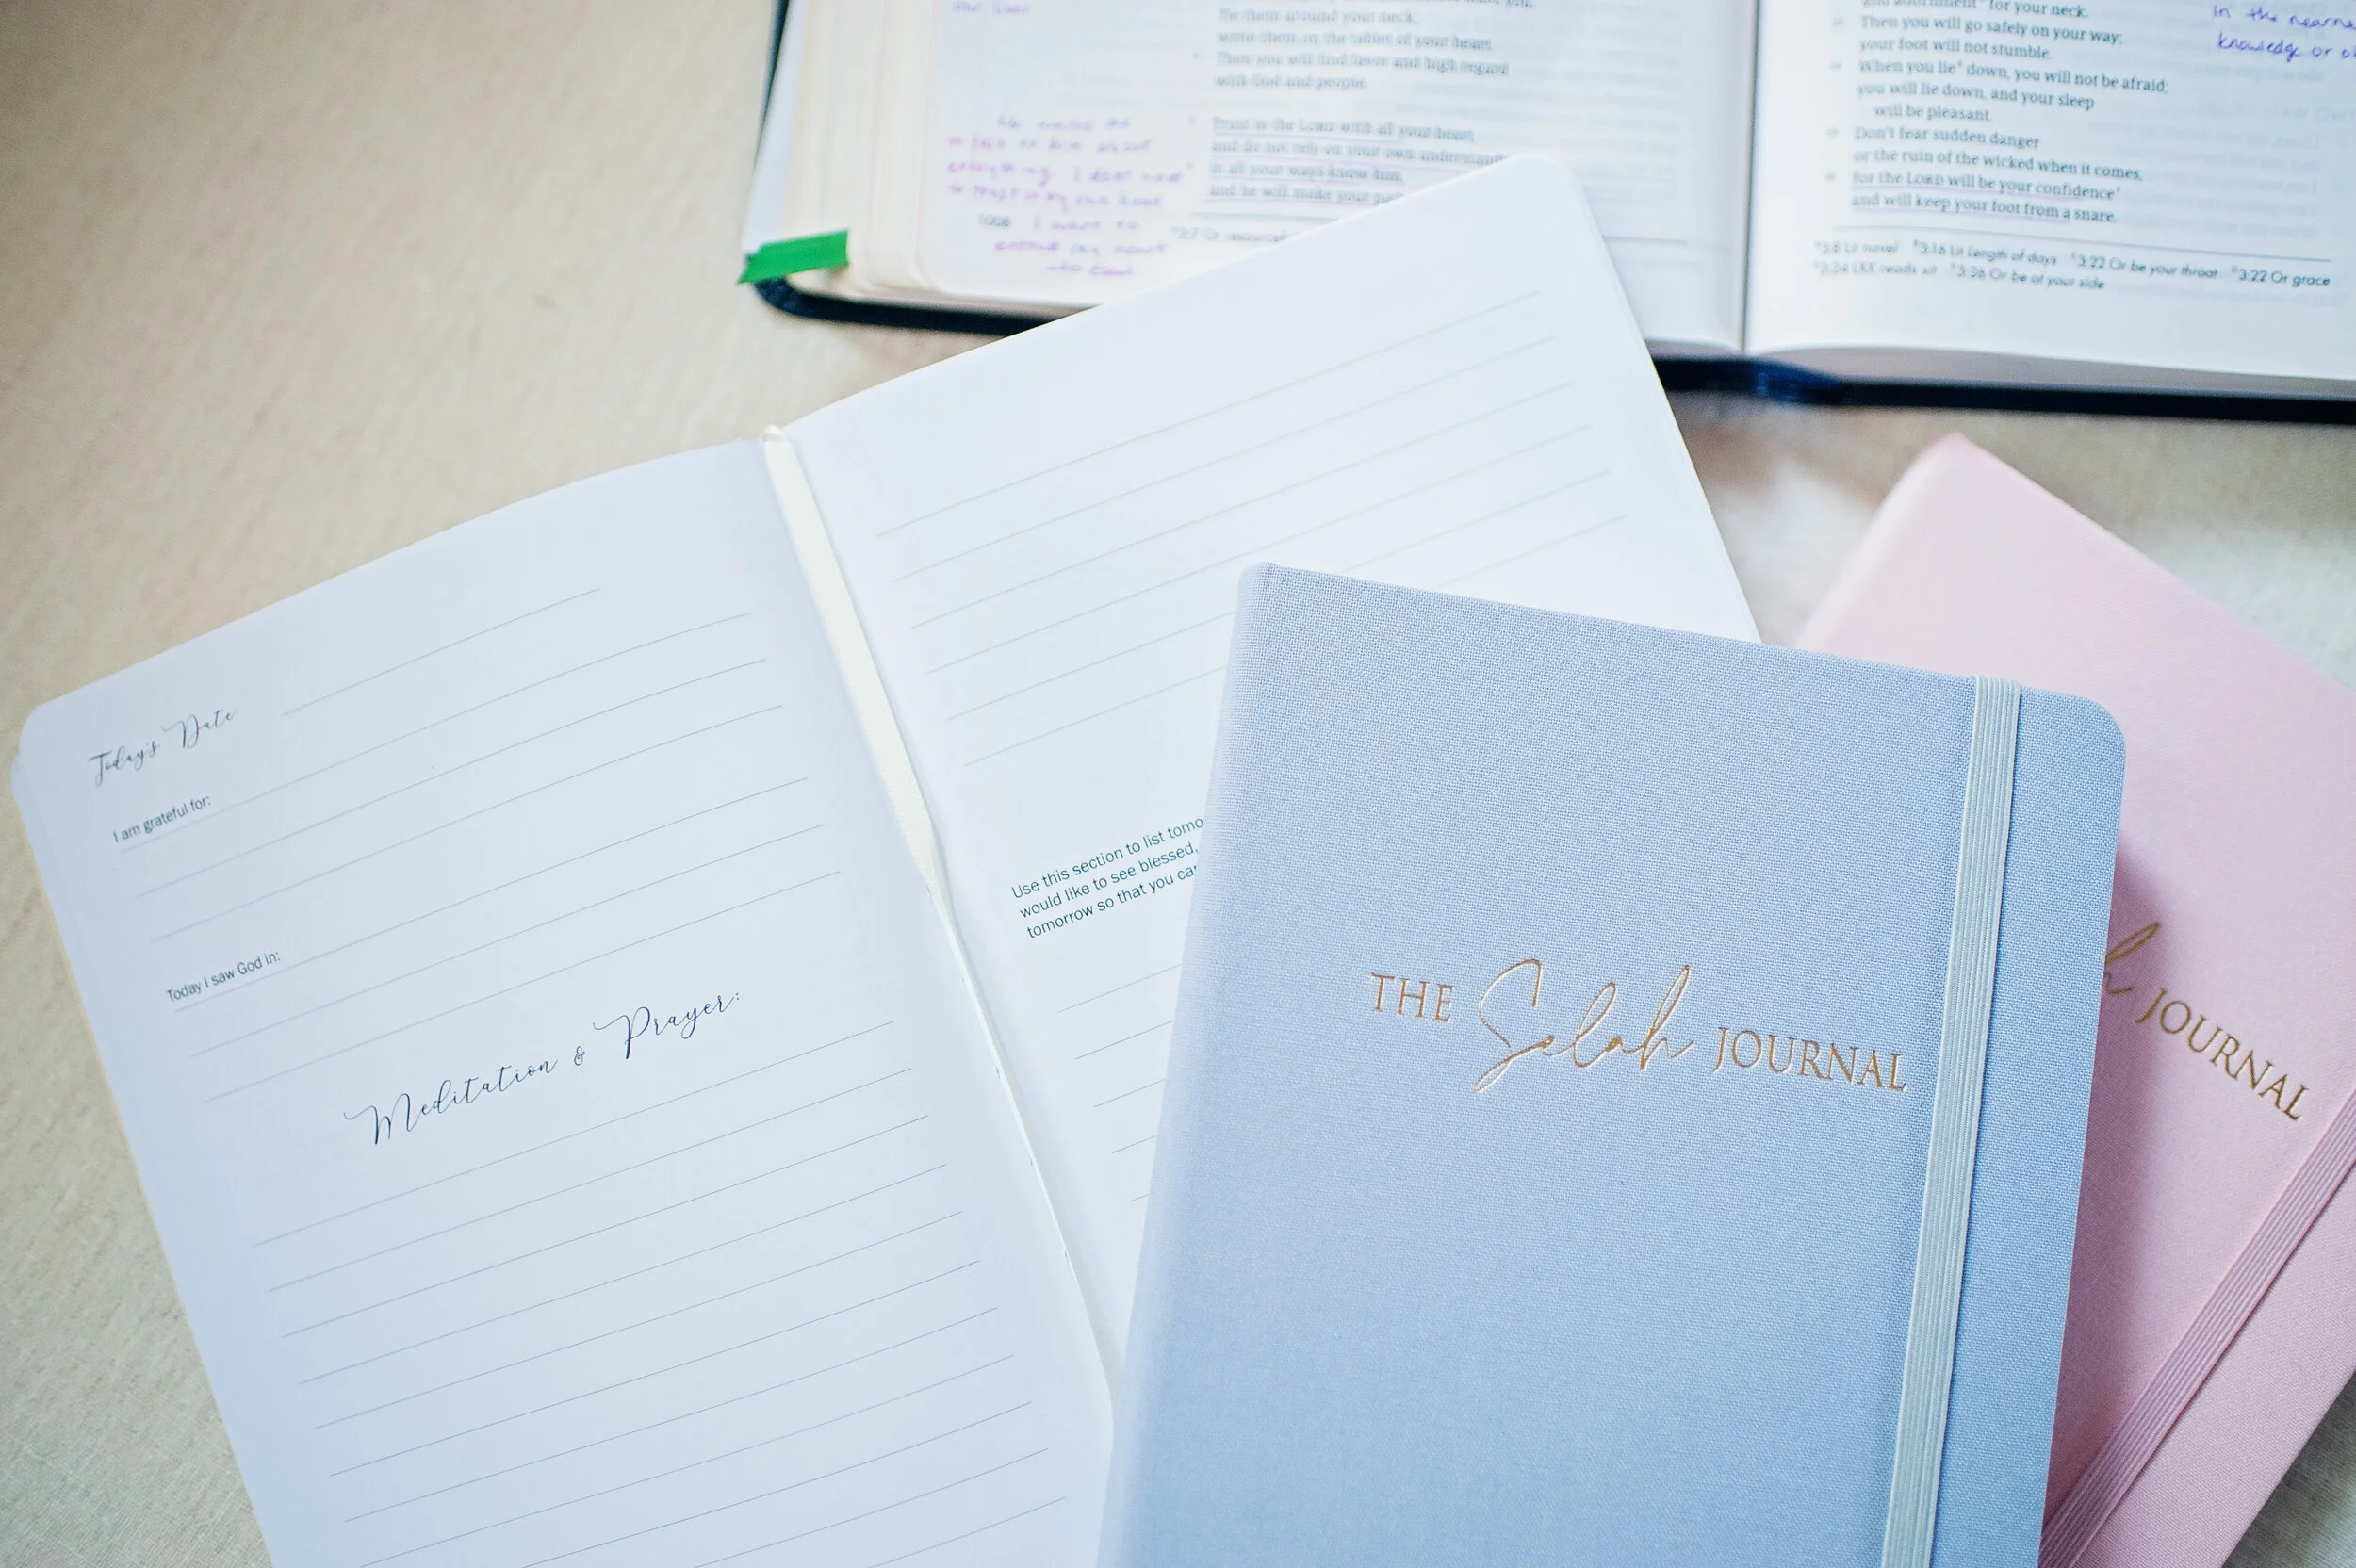 Tie them around your neck;
write them on the tablet of your heart.
Then you will find favor and high regard
with God and people.
Trust in the LORD with all your heart,
and do not rely on your own understanding
in all your ways know him,
and he will make your
1008
for your neck.
Then you will go safely on your way;
your foot will not stumble.
When you lie down, you will not be afraid;
you will lie down, and your sleep
will be pleasant.
Don't fear sudden danger
or the ruin of the wicked when it comes,
for the LORD will be your confidence
and will keep your foot from a snare.
3:16 Lit Length of days 3:22 Or be your throat 3:22 Or grace
3:26 Or be at your side
in the
knowledge or
Today's Date:
I am grateful for:
Today I saw God in:
Meditation & Prayer:
Use this section to list tomo
would like to see blessed,
tomorrow so that you ca
THE Selah JOURNAL
h JOURNAL